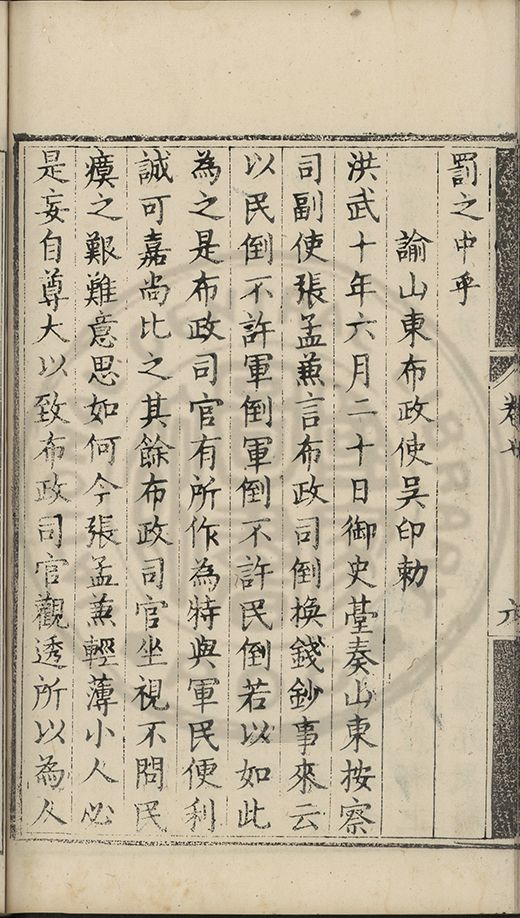 罰之中乎
諭山東布政使吳印勅
洪武十年六月二十日御史臺奏山東按察
司副使張孟蒹言布政司倒換錢鈔事來云
以民倒不許軍倒軍倒不許民倒若以如此
為之是布政司官有所作為特與軍民便利
誠可嘉尚比之其餘布政司官坐視不問民
瘼之艱難意思如何今張孟蒹輕薄小人必
是妄自尊大以致布政司官觀透所以為人